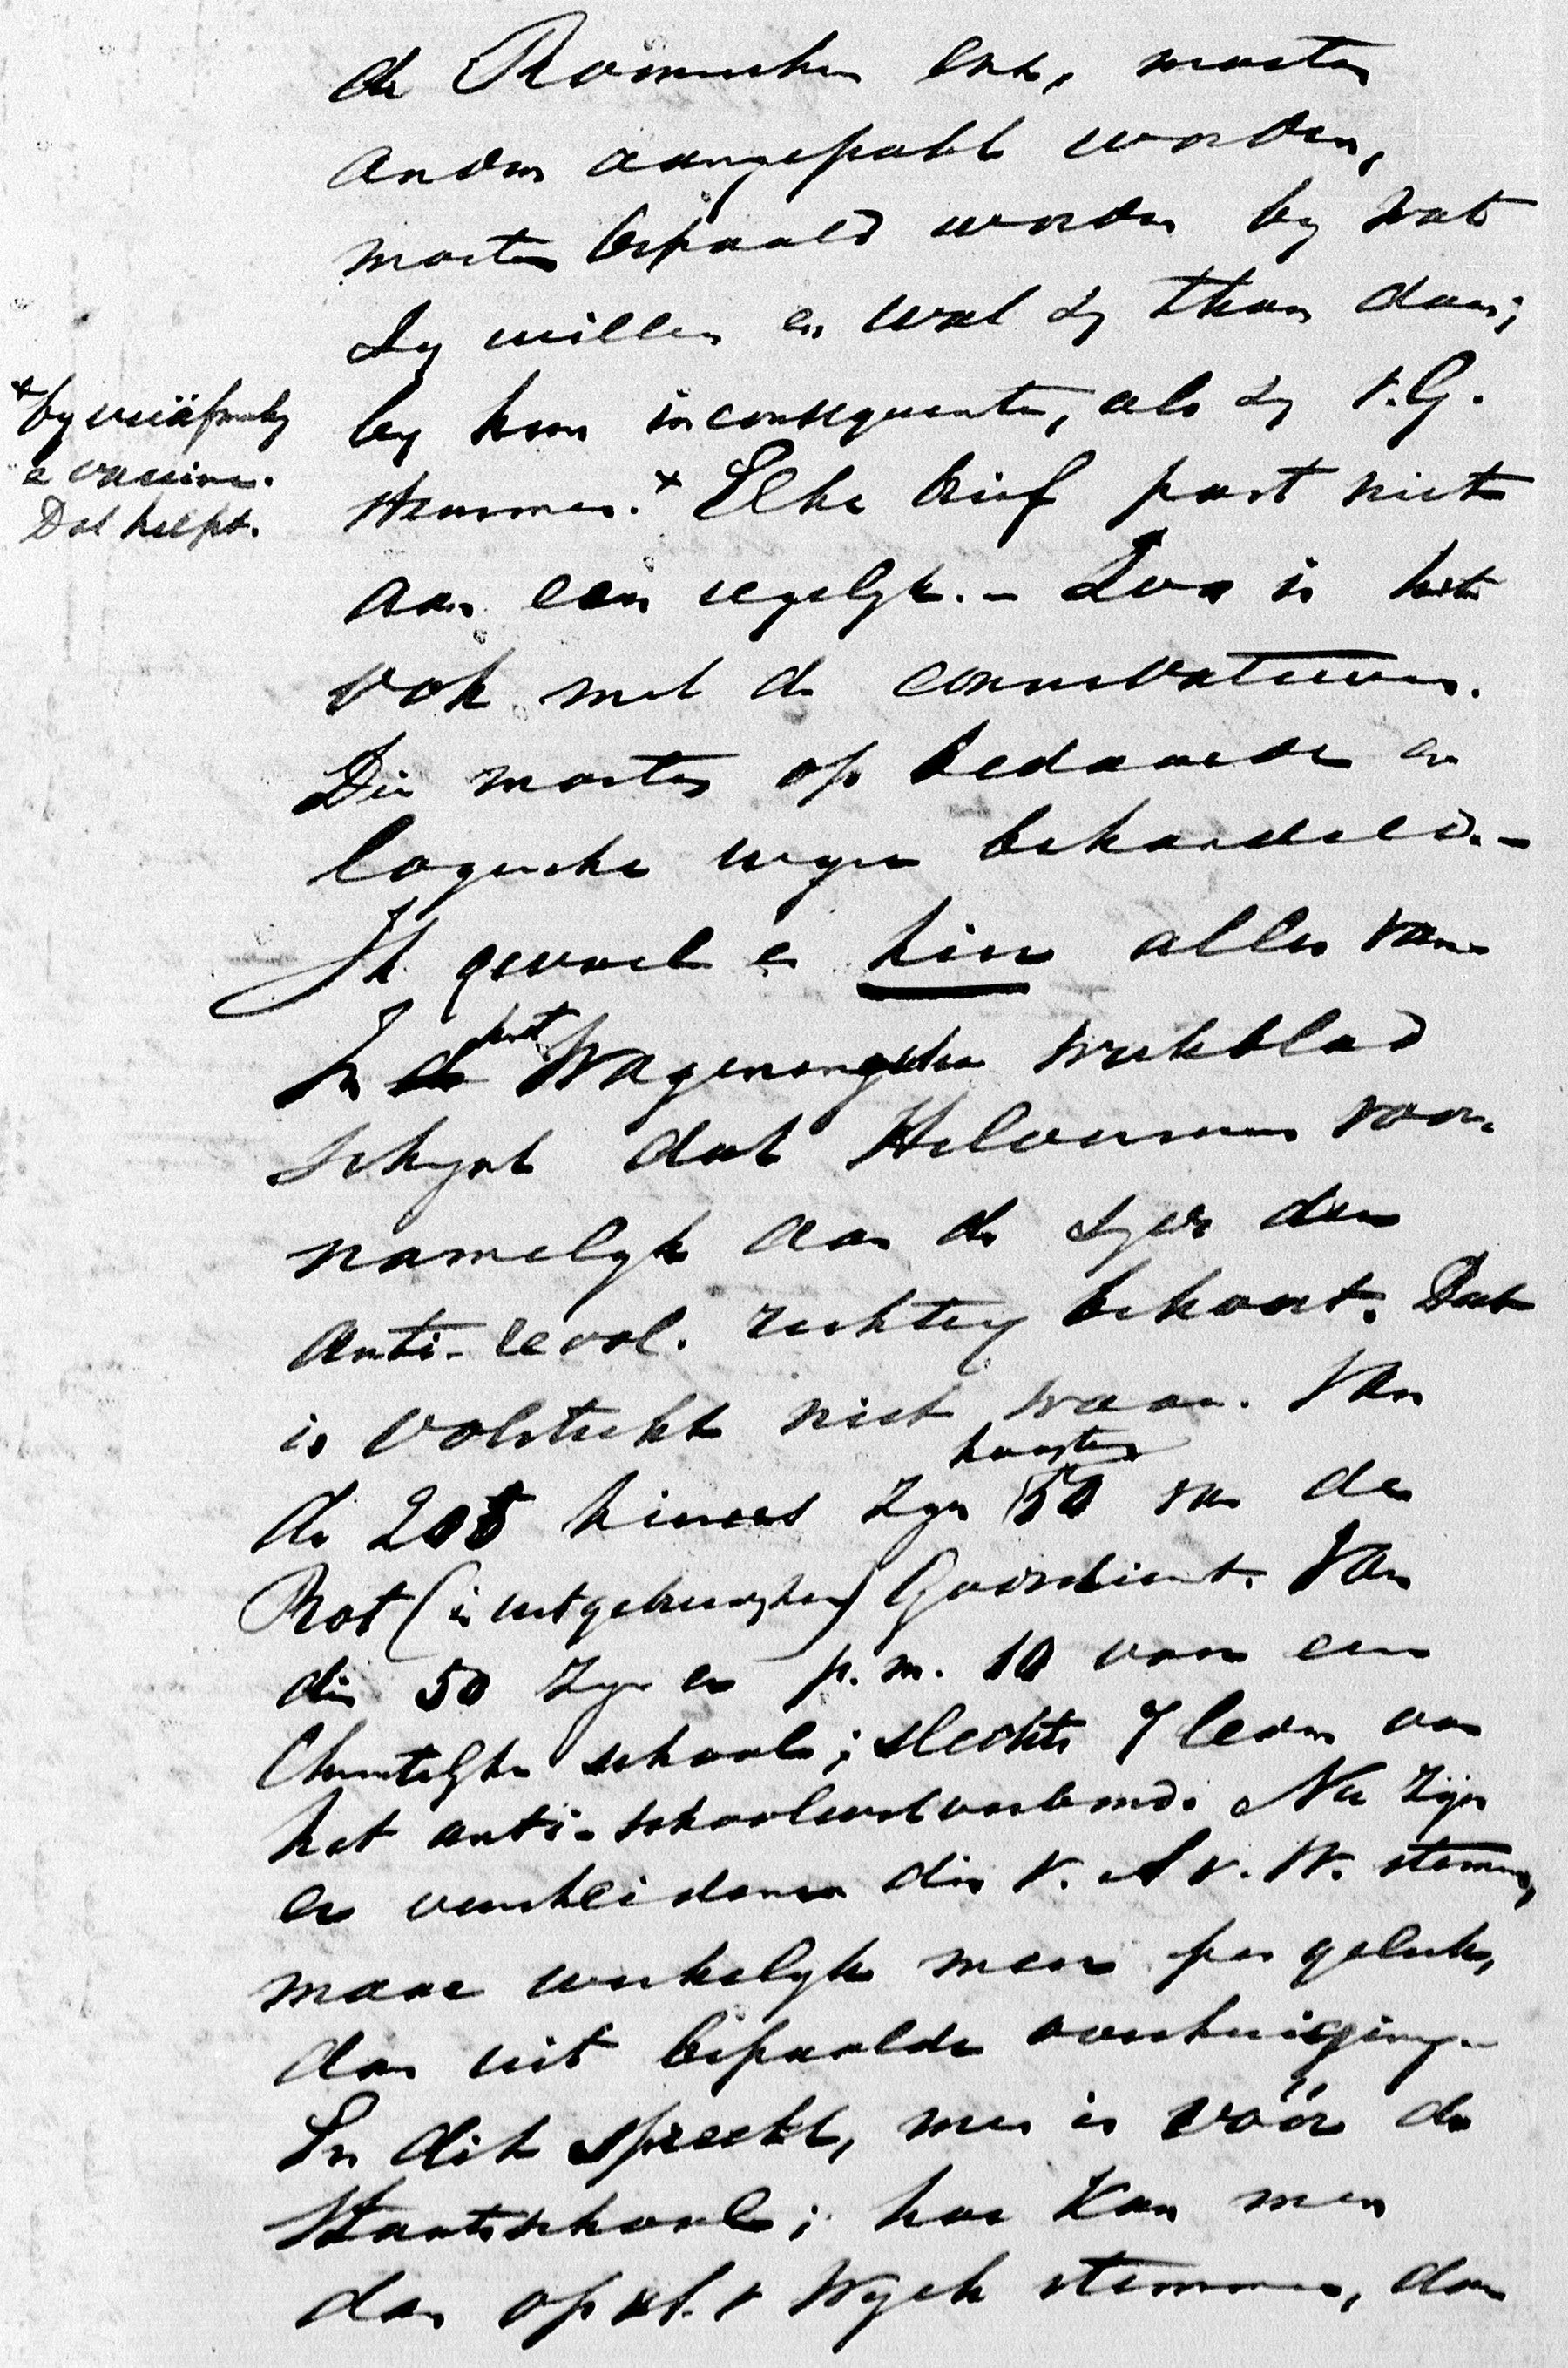 de Roomschen enz, moeten
anders aangepakt worden,
moeten bepaald worden by wat
Zy willen en wat zy thans doen;
by hun inconsequentie, als zy v.G.
stemmen. x Elke brief past niet
aan een iegelyk. – Zoo is het
ook met de conservatieven.
Die moeten op bedaarde en
logische wyze behandeld. –
x by
e vaccine.
Dat helpt.
Ik gevoel er hier alles van
In de het Wageningsche weekblad
schynt dat Hilversum voor-
namelyk aan de zyde der
anti-revol. richting behoort. Dat
is volstrekt niet waar. Van
de 205 kiezers zyn hoogstens 50 van de
Prot (in uitgebreiden) Godsdienst. Van
die 50 zyn er p.m. 10 voor een
Christelyke school; slechts 7 leden van
het anti-schoolwetverbond. Nu zijn
er verscheidenen die v. L v. W. stemmen,
maar werkelyk meer par geluk,
dan uit bepaalde overtuiging
En dit spreekt, men is vóór de
Staatsschool; hoe kan men
dan op v Wyck stemmen, dan